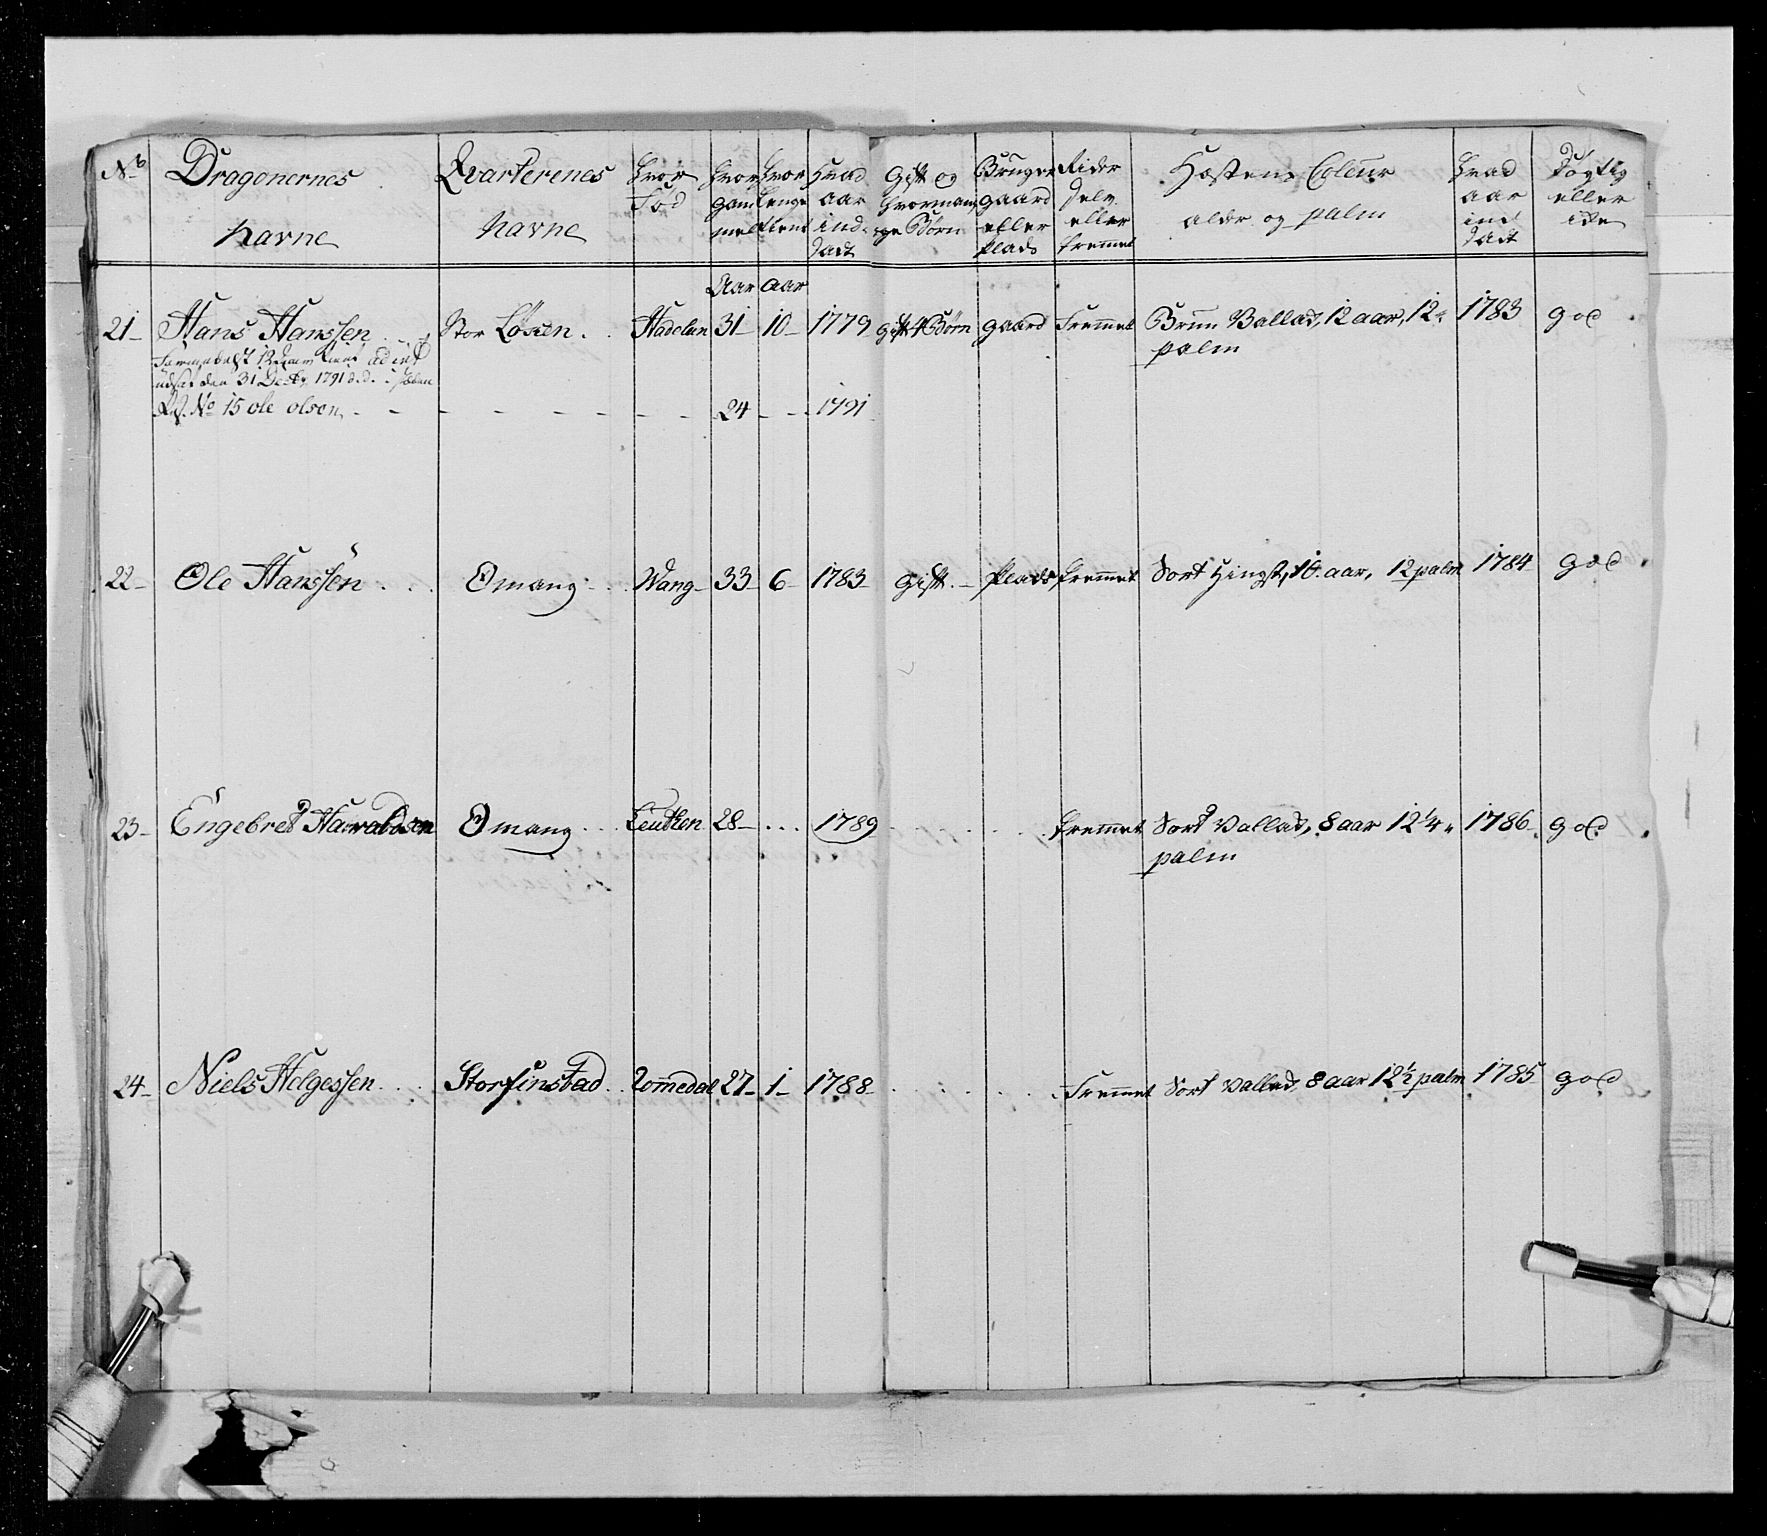 No | Dragonernes Navne | Qvarterenes Navne | Hvor Fød | Hvor gammel | Hvor lenge tient | Hvad aar ind: sadt | Gift og hvor mange Børn | Bruger gaard eller Plads | Rider selv eller fremmet | Hæstens Coleur alder og palm | Hvad aar ind sadt | Døgtig eller ikke
Aar aar
21 Hans Hanssen Stor Løsen Hadelan 31 10 1779 gift 4 Børn gaard Fremmet Brun Vallad, 12 aar, 12
palm 1783 god
udsat den 31 Decbr 1791
No 15 ole olsen 24 1791
22 Ole Hanssen Omang Wang 33 6 1783 Gift Plads fremmet Sort Hingst, 10 aar, 12 palm 1784 god
23 Engebret Haraldsen Omang Leuthen 28 1789 fremmet Sort Vallad, 8 aar 12 1/4
palm 1786 god
24 Niels Helgessen Storfinstad Rommedal 27 1 1788 Fremmet Sort Vallad, 8 aar 12 1/2 palm 1785 god